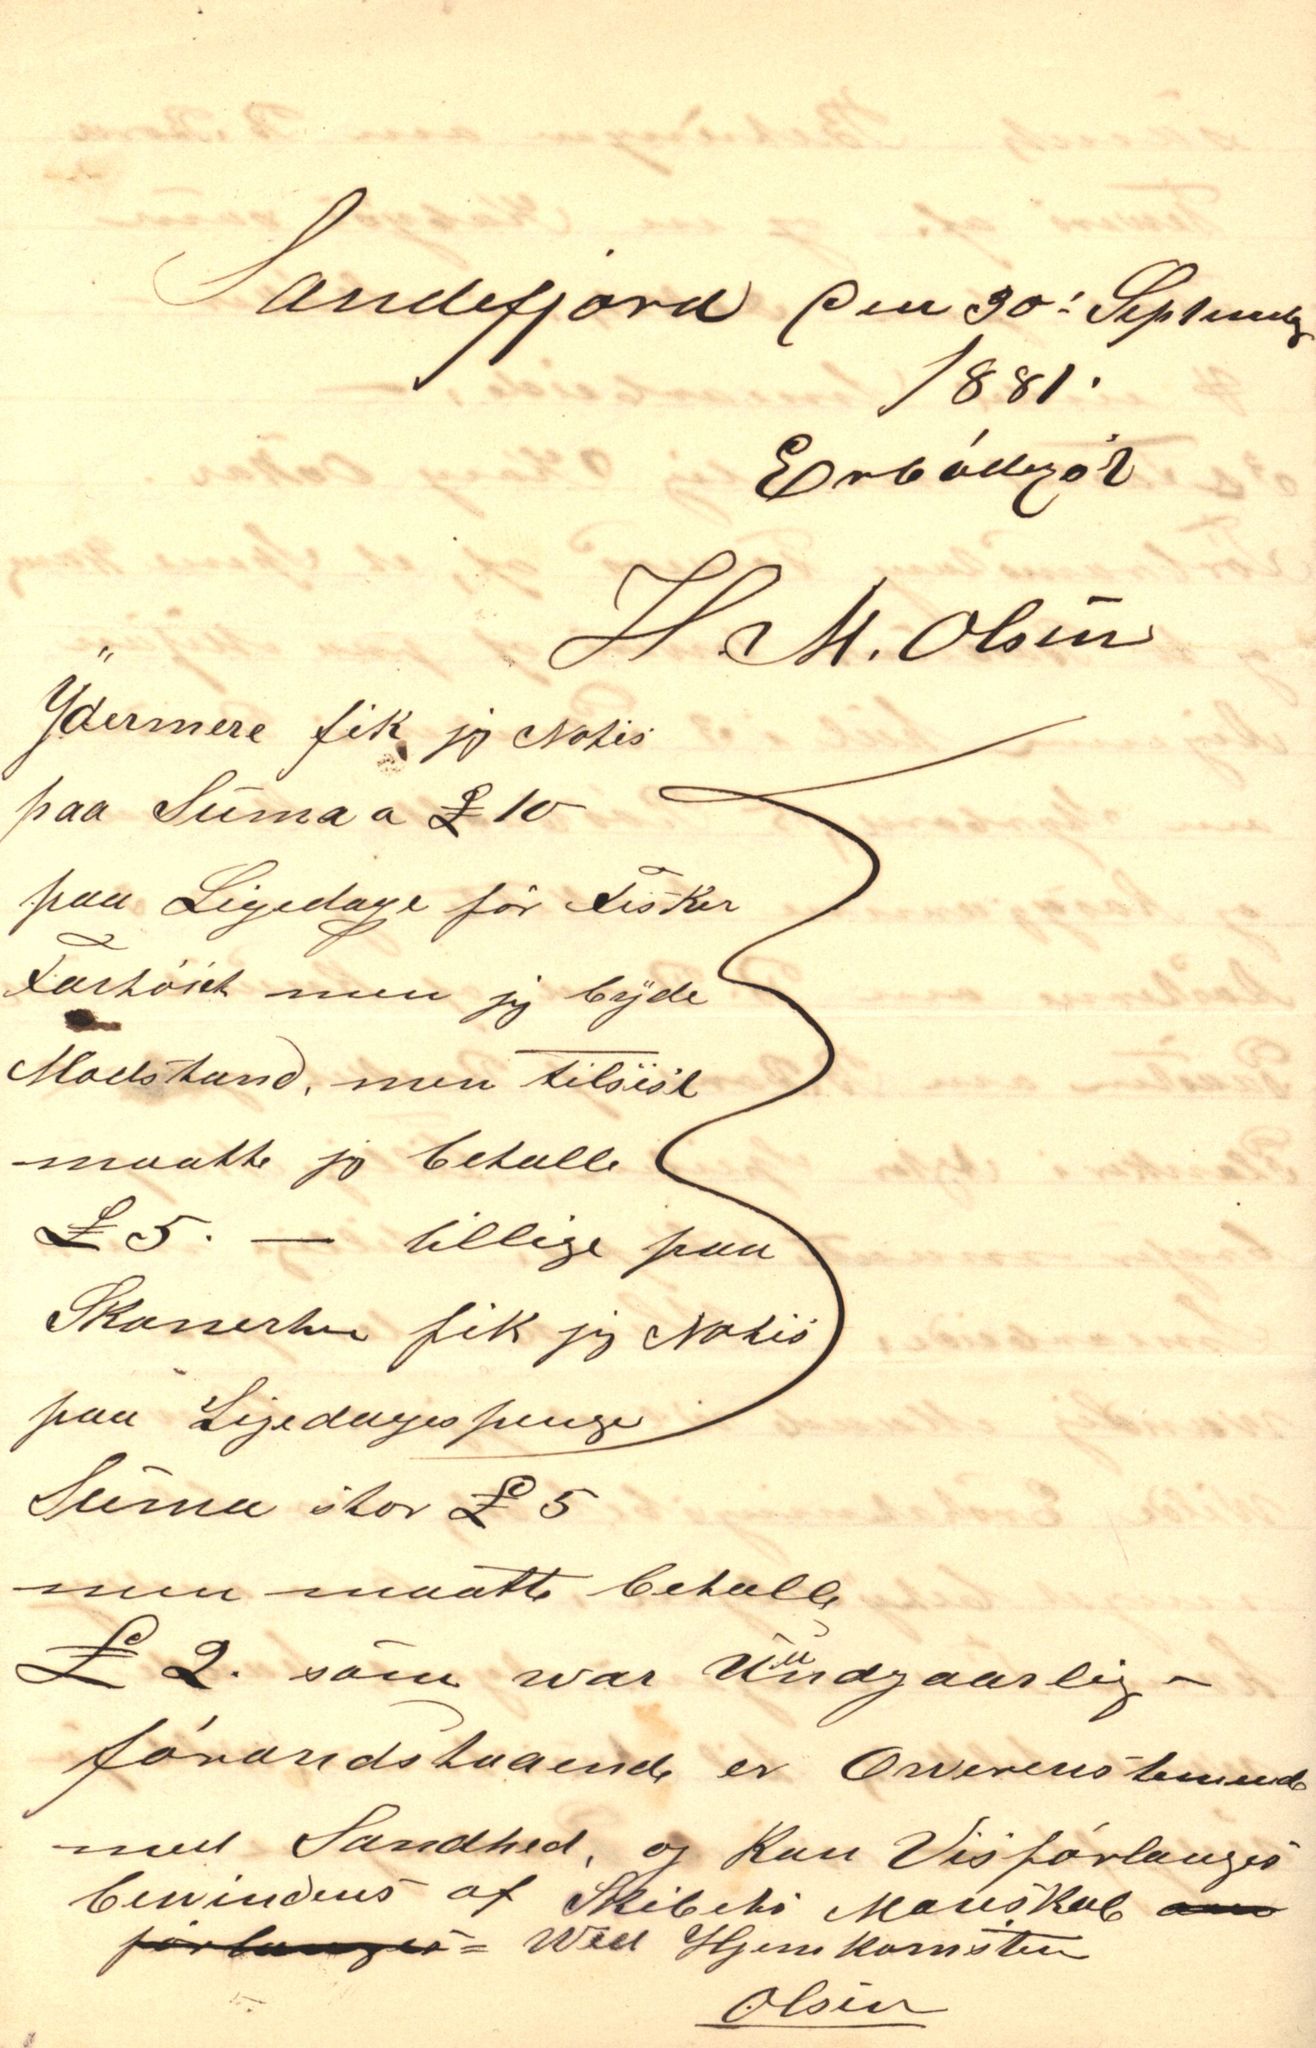 Sandefjord den 30' Septemb
1881.
Erbödigst
H. M. Olsen
Ydermere fik jeg Notis
paa Suma a £ 10
paa Ligedage för Fisker
Fartöiet men jeg byde
Modstand, men tilsist
maatte jg betalle
£ 5. — tillige paa
Skonerten fik jeg Notis
paa Ligedagespenge
Suma stor £ 5
men maatte betalle
£ 2. som war Uundgaarlig —
förandstaaende er Owerenstemende
med Sandhed, og Kan Vis förlanges
bewindens af Skibets Manskab
förlanges = Wed Hjemkomsten
Olsen